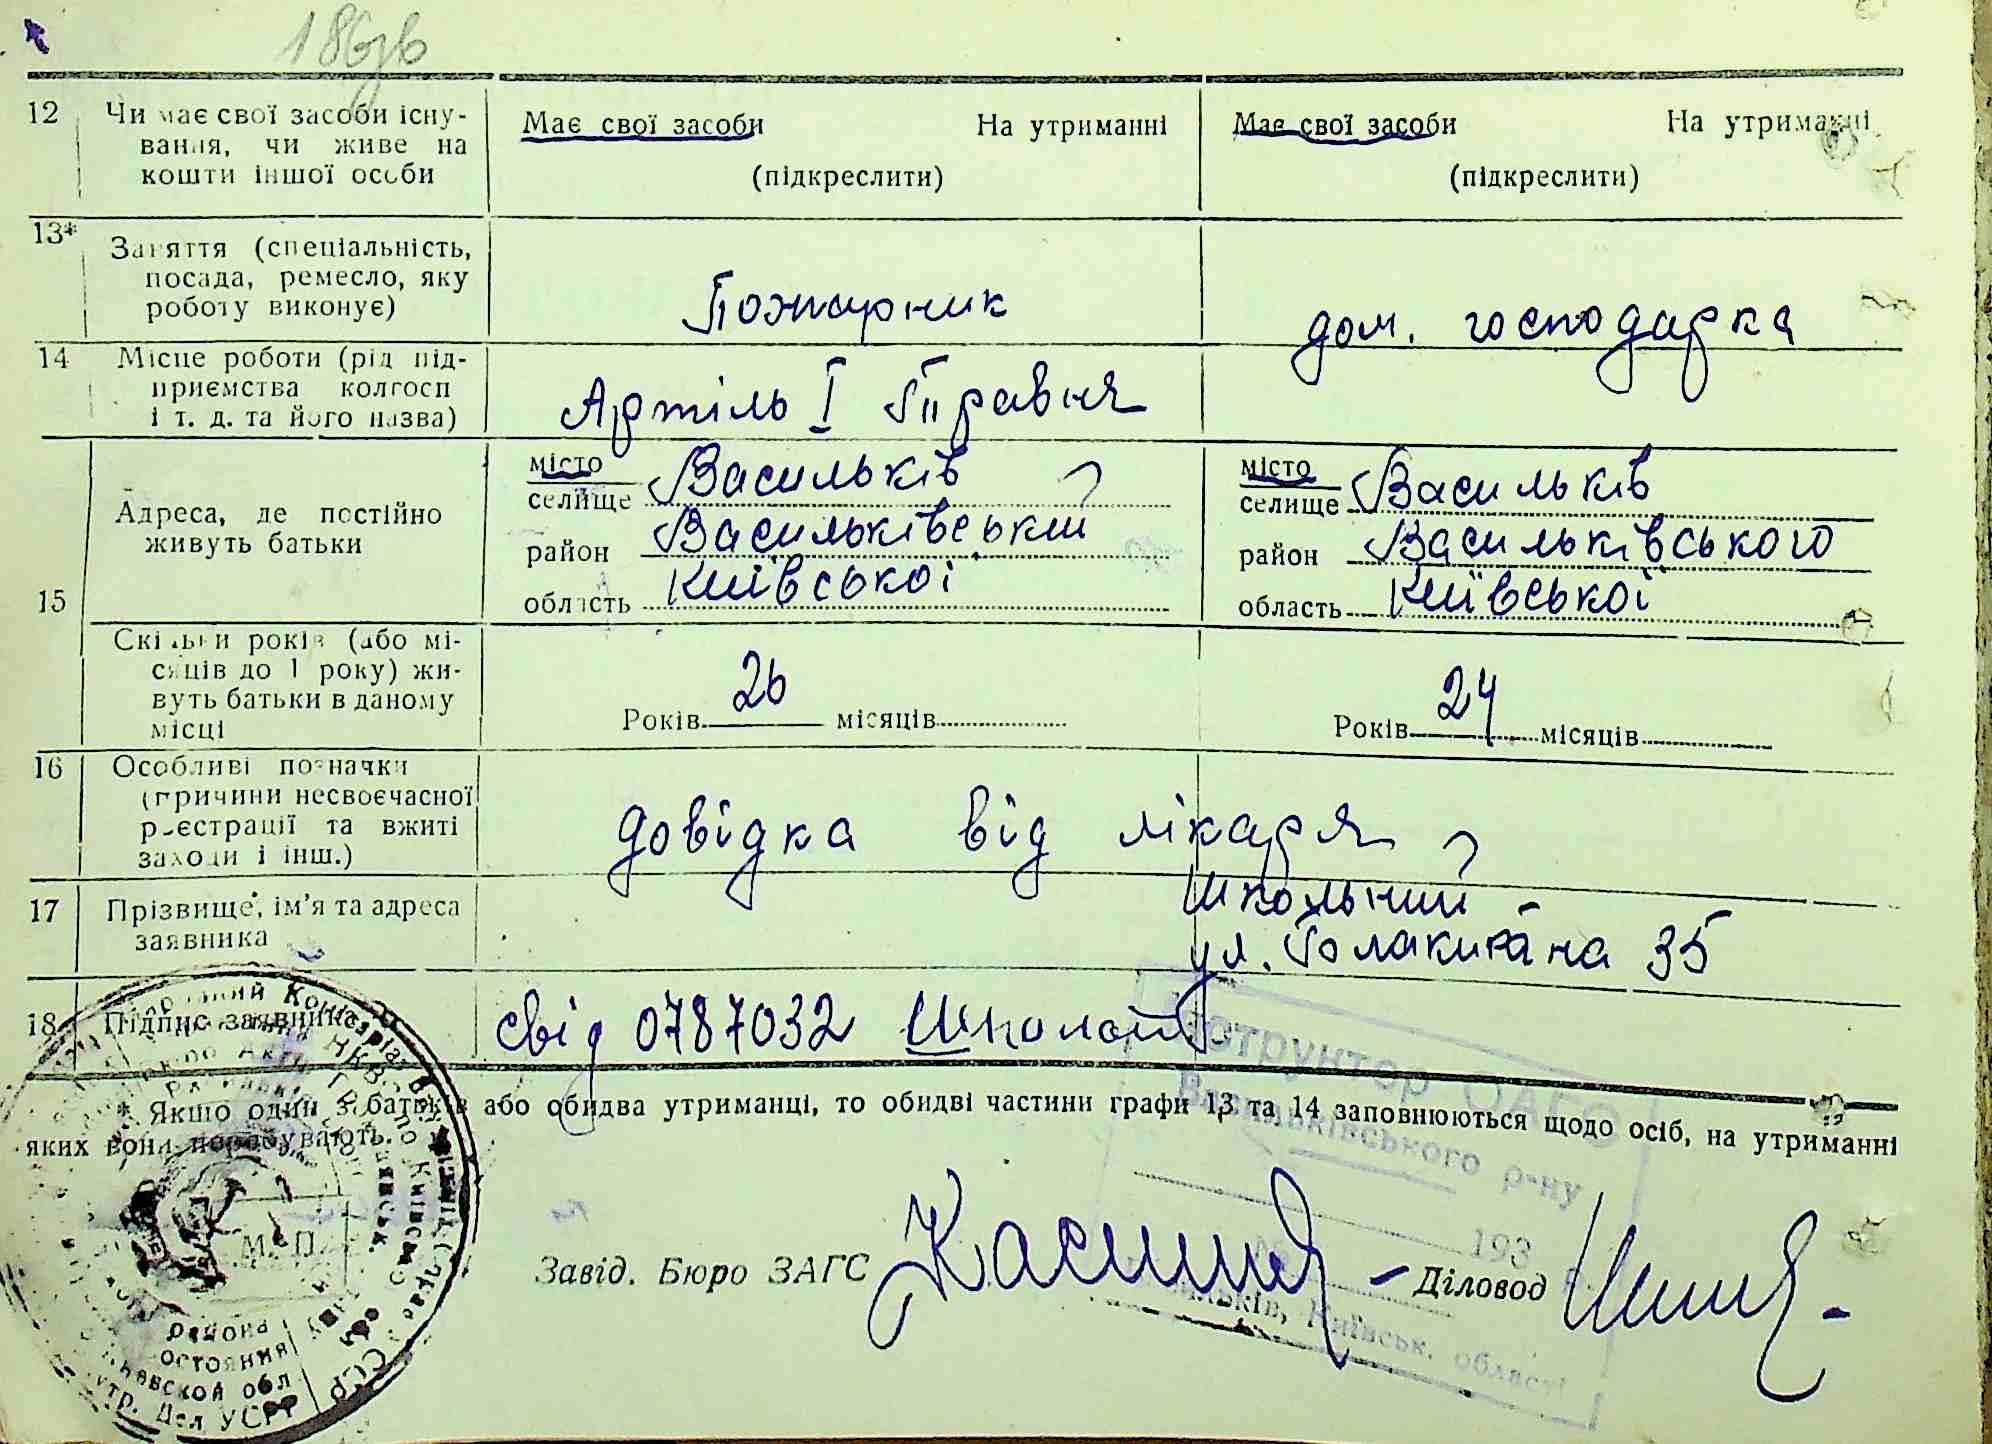 186зв
12 Чи має свої засоби існу-
вання, чи живе на
кошти іншої особи
Має свої засоби На утриманні
(підкреслити)
Має свої засоби На утриманні
(підкреслити)
13* Заняття (спеціальність,
посада, ремесло, яку
роботу виконує)
Пожарник
дом. господарка
14 Місце роботи (рід під-
приємства колгосп
і т. д. та його назва)
Артіль І Травня
15
Адреса, де постійно
живуть батьки
місто
селище Васильків
район Васильківський
область Київської
місто
селище Васильків
район Васильківського
область Київської
Скільки років (або мі-
сяців до 1 року) жи-
вуть батьки в даному
місці
Років 26 місяців
Років 24 місяців
16 Особливі позначки
(причини несвоєчасної
реєстрації та вжиті
заходи і інш.)
довідка від лікаря
17 Прізвище, ім'я та адреса
заявника
Школьний
ул. 35
18 Підпис заявника
свід 0787032
* Якшо один з батьків або обидва утриманці, то обидві частини графи 13 та 14 заповнюються щодо осіб, на утриманні
яких вони перебувають.
Інструктор ОАГС
Васильківського р-ну
193
Васильків, Київськ. області
М. П.
Завід. Бюро ЗАГС
Діловод
района
состояния
Киевской обл
Внутр. Дел УСРР